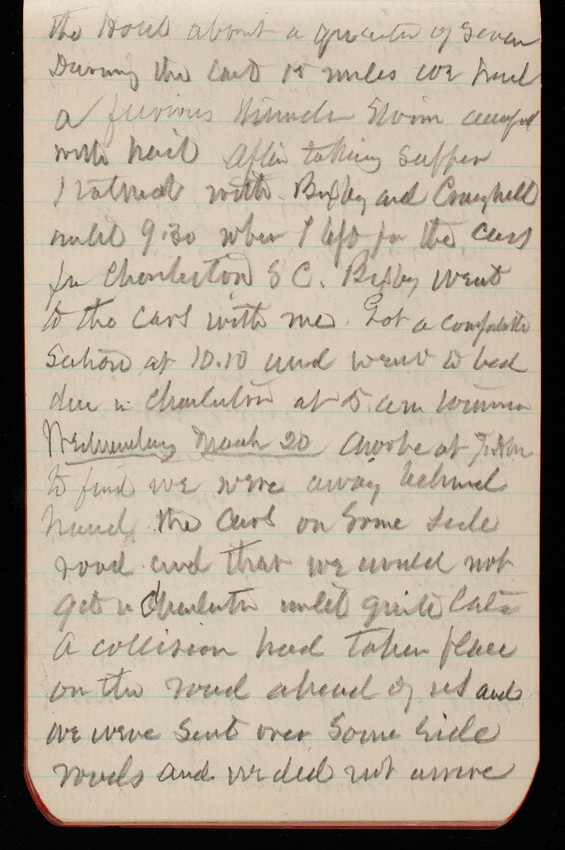 the Hotel about a quarter of Seven
During the last 15 miles we had
a furious Thunder Storm accompd
with hail After taking Supper
I talked with Bixby and Craighill
until 9:30 when I left for the cars
for Charleston S C. Bixby went
to the cars with me. Got a comfortable
Section at 10.10 and went to bed
due in Charleston at 5 am tomorrow
Wednesday March 20 Awoke at
to find we were away behind
hand the cars on Some Side
road and that we would not
get to Charleston until quite late
A collision had taken place
on the road ahead of us and
we were Sent over Some Side
roads and we did not arrive